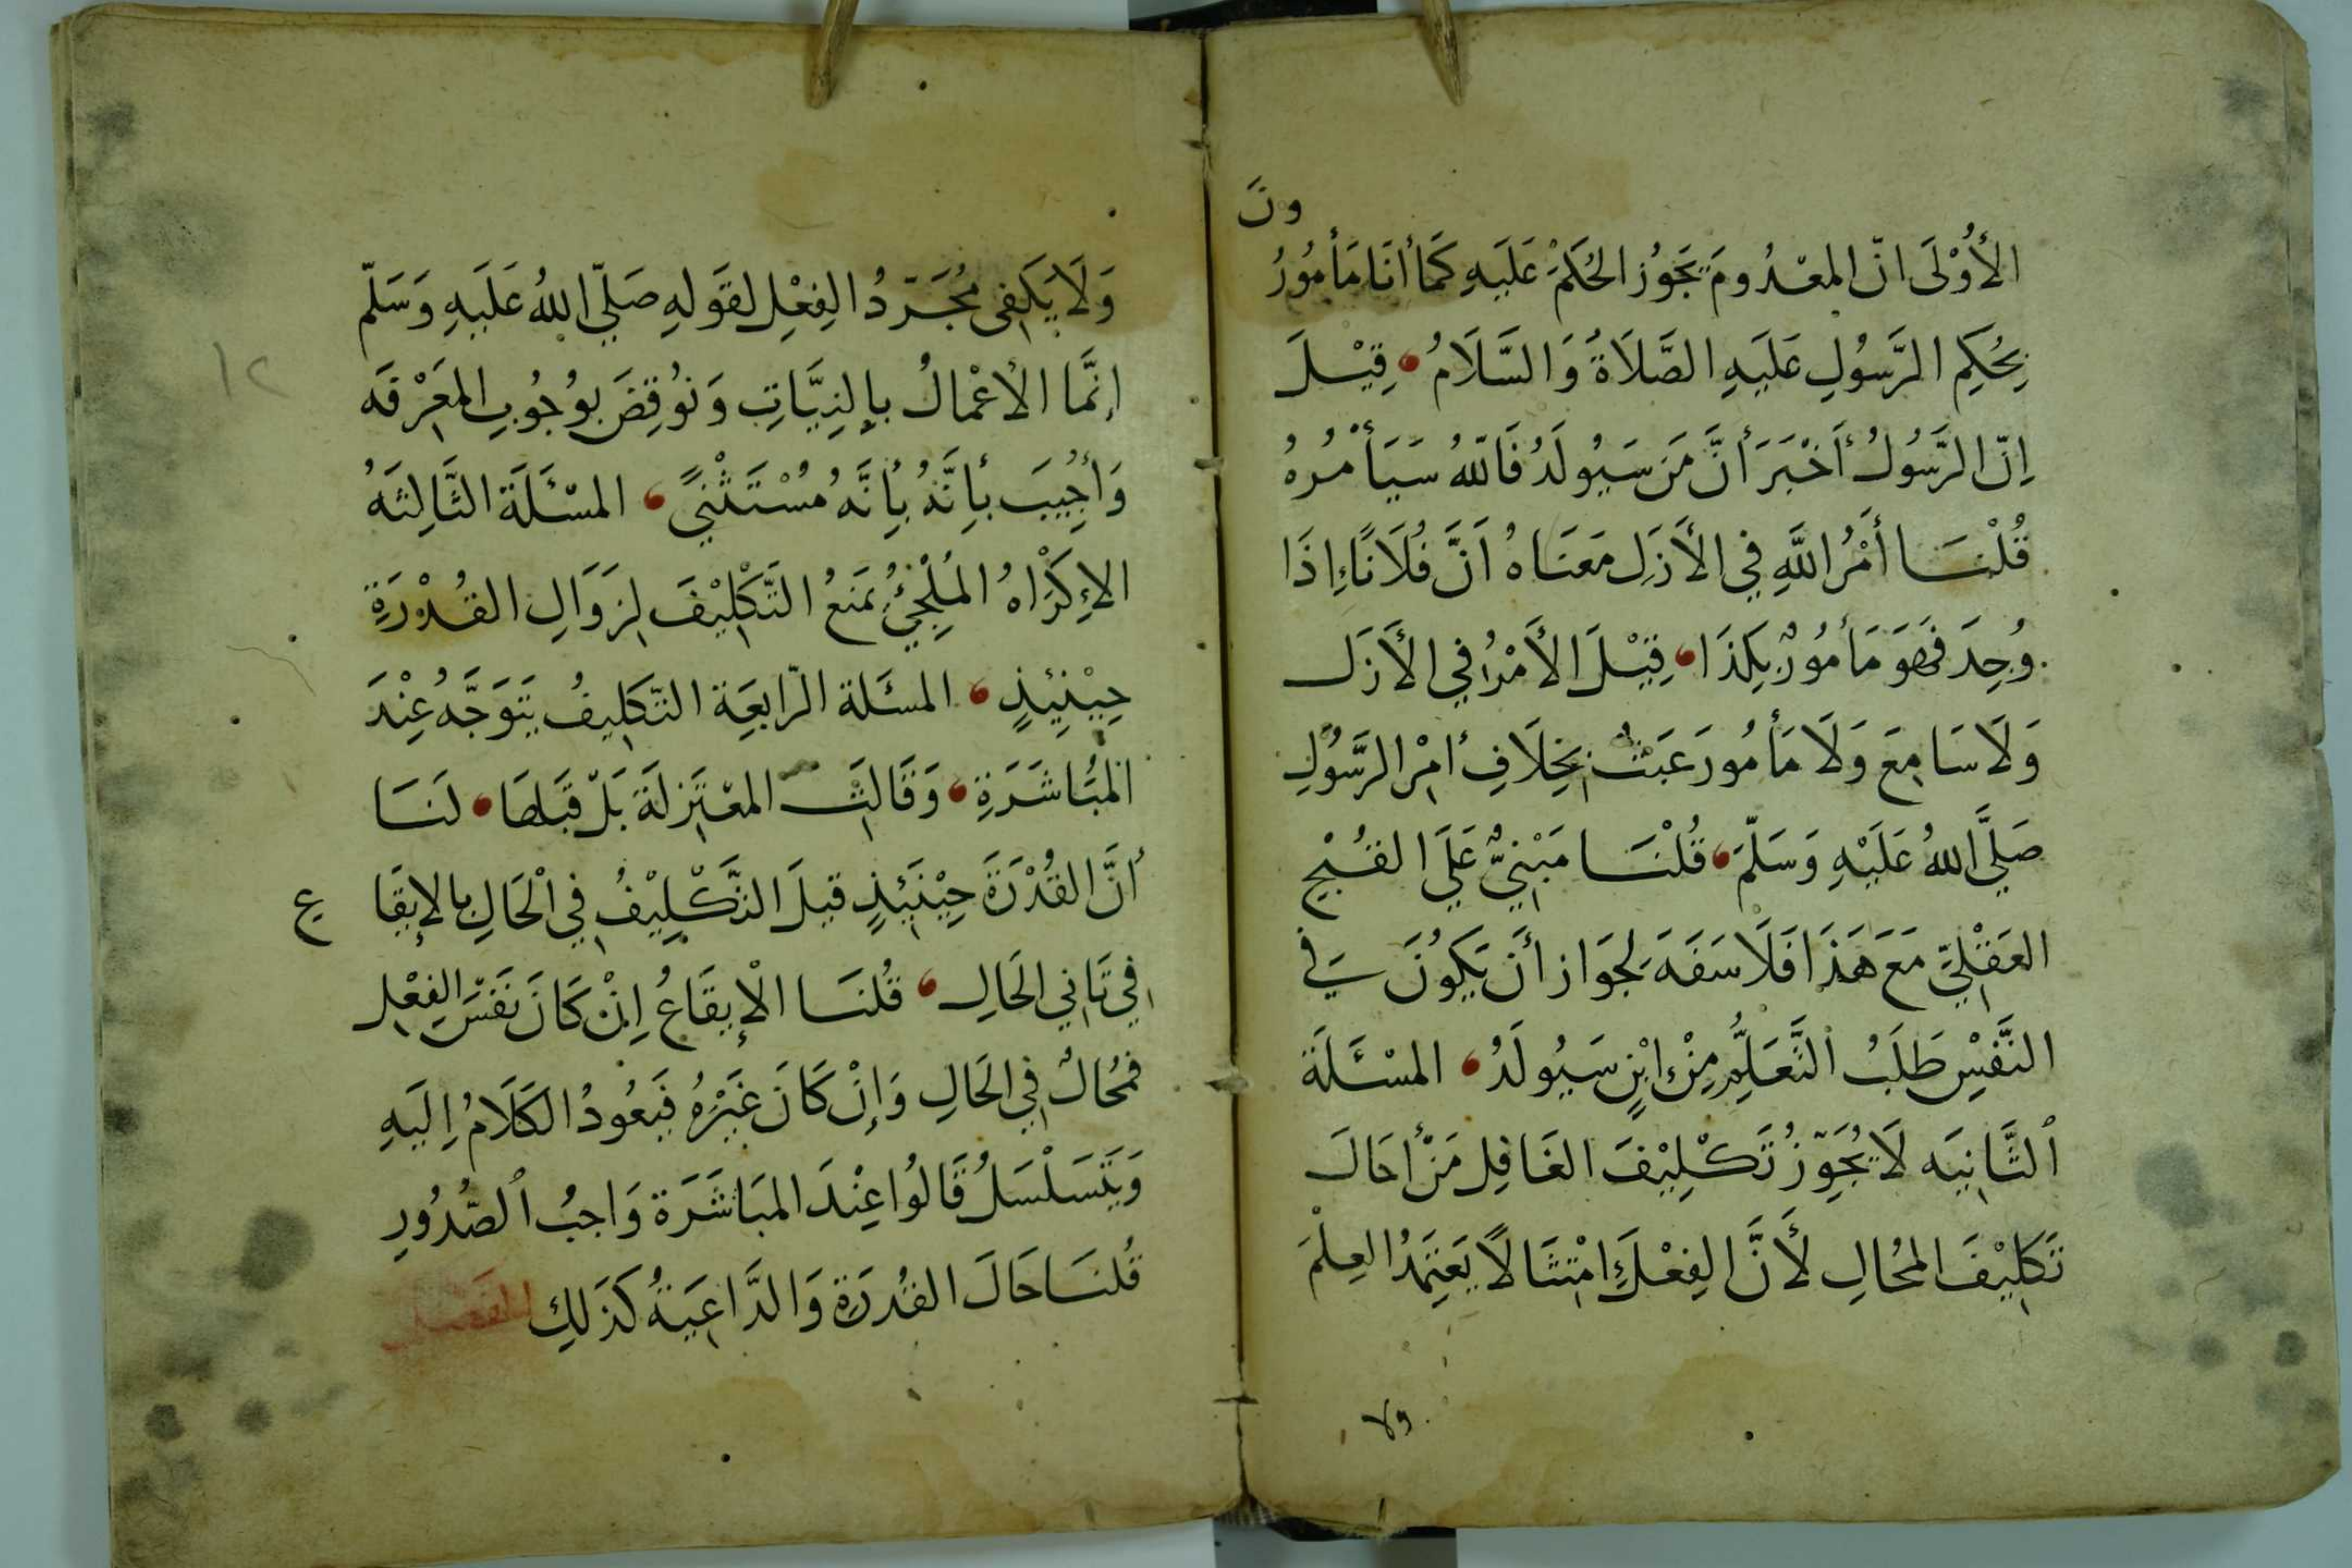 الأُوْلَى انّ المعْدُومَ يَجَوُز الحُكَمْ عَلَيَهِ كَمَا أنَا مَأمُورُ
ونَ
بِحُكِم الرَّسُولِ عَلَيَهِ الصَّلَاةَُ وَ السَّلَامُ قِيْلَ
اِنّ الرَّسُولُ أَخْبَرَ أنَّ مَنَ سَيُولَدُ فَاللهُ سَيَأمُرهُ
قُلْنَا أَمْرُ اللَّهِ فِي الأَزَلِ مَعَنَاهُ اَنَّ فُلَانًا إِذَا
وُجِدَ فَهَوَ مَأمُورٌ بِكَذَا قِيْلَ الأَمْرُ فِي الأَزَل
وَلَا سَامِعَ وَلَا مَأمُورَ عَبَثٌ بِخِلَافِ أَمْرِ الرَّسُولِ
صَلَّى اللهُ عَلَيْهِ وَسَلّمَ قُلْنَا مَبْنِيٌّ عَلَي القُبْحِ
العَقْلِيِّ مَعَ هَذَا فَلَا سَفَهَ لِجَوَاز أنَ يَكَوُنَ فِي
النَّفْسِ طَلَبُ التَّعَلُّمِ مِنْ ابْنٍ سَيُولَدُ المسْئَلَة
ٱلثَّانِيَه لَا يُجَوِّزُ تَكْلِيْفَ الغَافِلِ مَنْ أحَالَ
تَكلِيْفَ المحُالِ لأَنَّ الفِعْلَ امْتثَالًا يَعَتِمَدُ العِلْمَ
ولا
وَلَا يَكَفِى مُجَرَّدُ الفِعْلِ لقَولهِ صَلّي اللهُ عَلَيَهِ وَسَلّم
إنمَّا الأعْمالُ بالنِيَّاتِ وَنُوقِضَ بوُجُوبِ المعَرْفَه
وَأُجِيَبَ بأِنَّهُ بأِنَّهُ مُسْتَثْنيً المسْئَلَة الثَّالِثَهُ
الإكَرْاهُ المُلْجِئُ يَمَنَعُ التَّكْلِيْفَ لِزَوَالِ القُدْرَةِ
حِيْنِئِذٍ المسئَلة الرّابعَِة التّكَلِيفُ يَتَوَجَّهُ عِنْدَ
المُبَاشَرَةِ وَقَالَتْ المعْتَزِلَة بَلْ قَبَلهَا لَنَا
أنَّ القُدْرَةَ حِيْنَئِذٍ قيلَ التَّكْلِيْفُ فِي اْلحَالِ بالإيقَا
ع
فِي ثَانِي الحَالِ قُلنَا اْلإيقَاعُ اِنْ كَانَ نَفَسَ الفِعْلِ
فمحُالٌ فِي الحَالِ وَإنْ كَانَ غَيْرَهُ فَيَعُودُ الكَلَامُ إِلَيَهِ
وَيَتَسَلْسَلُ قَالُوا عِنْدَ المبَاشَرَة وَاجبُ ٱلصُّدُورِ
قُلنَا حَالَ القُدرَةِ وَالدَّاعِيَةُ كَذَلِكَ
١٢